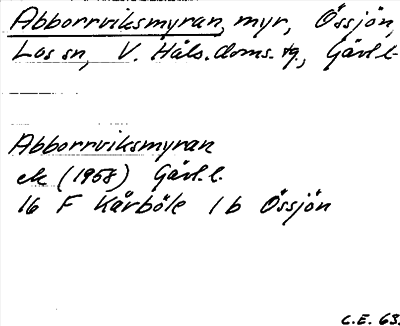 Abborrviksmyran, myr, Össjön,
Los sn, V. Häls. doms. tg, Gävl.l.
Abborrviksmyran
ek (1958) Gävl.l.
16 F Kårböle 1 b Össjön
C.E. 63.